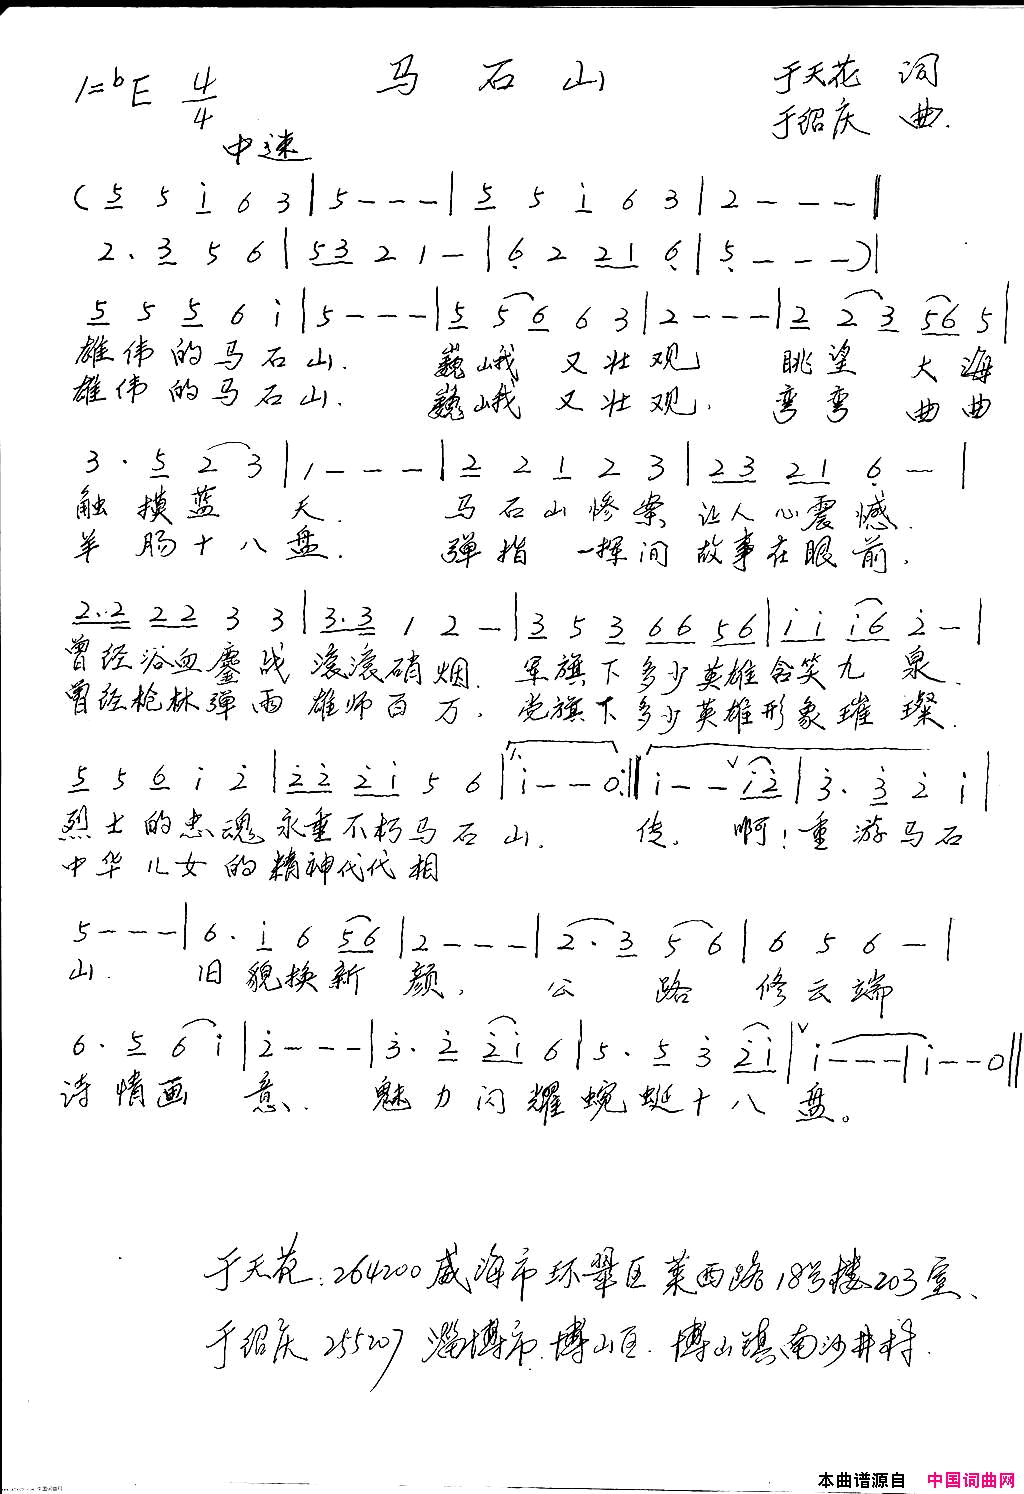 马石山
1=bE 4/4
于天花 词
于绍庆 曲.
中速
( 5 5 i 6 3 | 5 - - - | 5 5 i 6 3 | 2 - - - ‖
2. 3 5 6 | 5 3 2 1 - | 6 2 2 1 6 | 5 - - - ) |
5 5 5 6 i | 5 - - - | 5 5 6 6 3 | 2 - - - | 2 2 3 5 6 5 |
雄伟的马石山. 巍峨又壮观 眺望大海
雄伟的马石山. 巍峨又壮观. 弯弯曲曲
3 . 5 2 3 | 1 - - - | 2 2 1 2 3 | 2 3 2 1 6 - |
触摸蓝天. 马石山惨案 让人心震憾.
羊肠十八盘. 弹指一挥间 故事在眼前.
2..2 2 2 3 3 | 3.3 1 2 - | 3 5 3 6 6 5 6 | i i i 6 2 - |
曾经浴血鏖战 滚滚硝烟. 军旗下多少英雄含笑九泉.
曾经枪林弹雨 雄师百万. 党旗下多少英雄形象璀璨.
5 5 6 i 2 | 2 2 2 i 5 6 | i - - 0 :‖ i - - i 2 | 3 . 3 2 i |
烈士的忠魂永垂不朽马石山. 传. 啊! 重游马石
中华儿女的精神代代相
5 - - - | 6 . i 6 5 6 | 2 - - - | 2 . 3 5 6 | 6 5 6 - |
山. 旧貌换新颜. 公路修云端
6 . 5 6 i | 2 - - - | 3 . 2 2 i 6 | 5 . 5 3 2 i | i - - - | i - - 0 ‖
诗情画意. 魅力闪耀蜿蜒十八盘。
于天花: 264200 威海市环翠区莱西路18号楼203室.
于绍庆 255207 淄博市.博山区.博山镇南沙井村.
本曲谱源自 中国词曲网